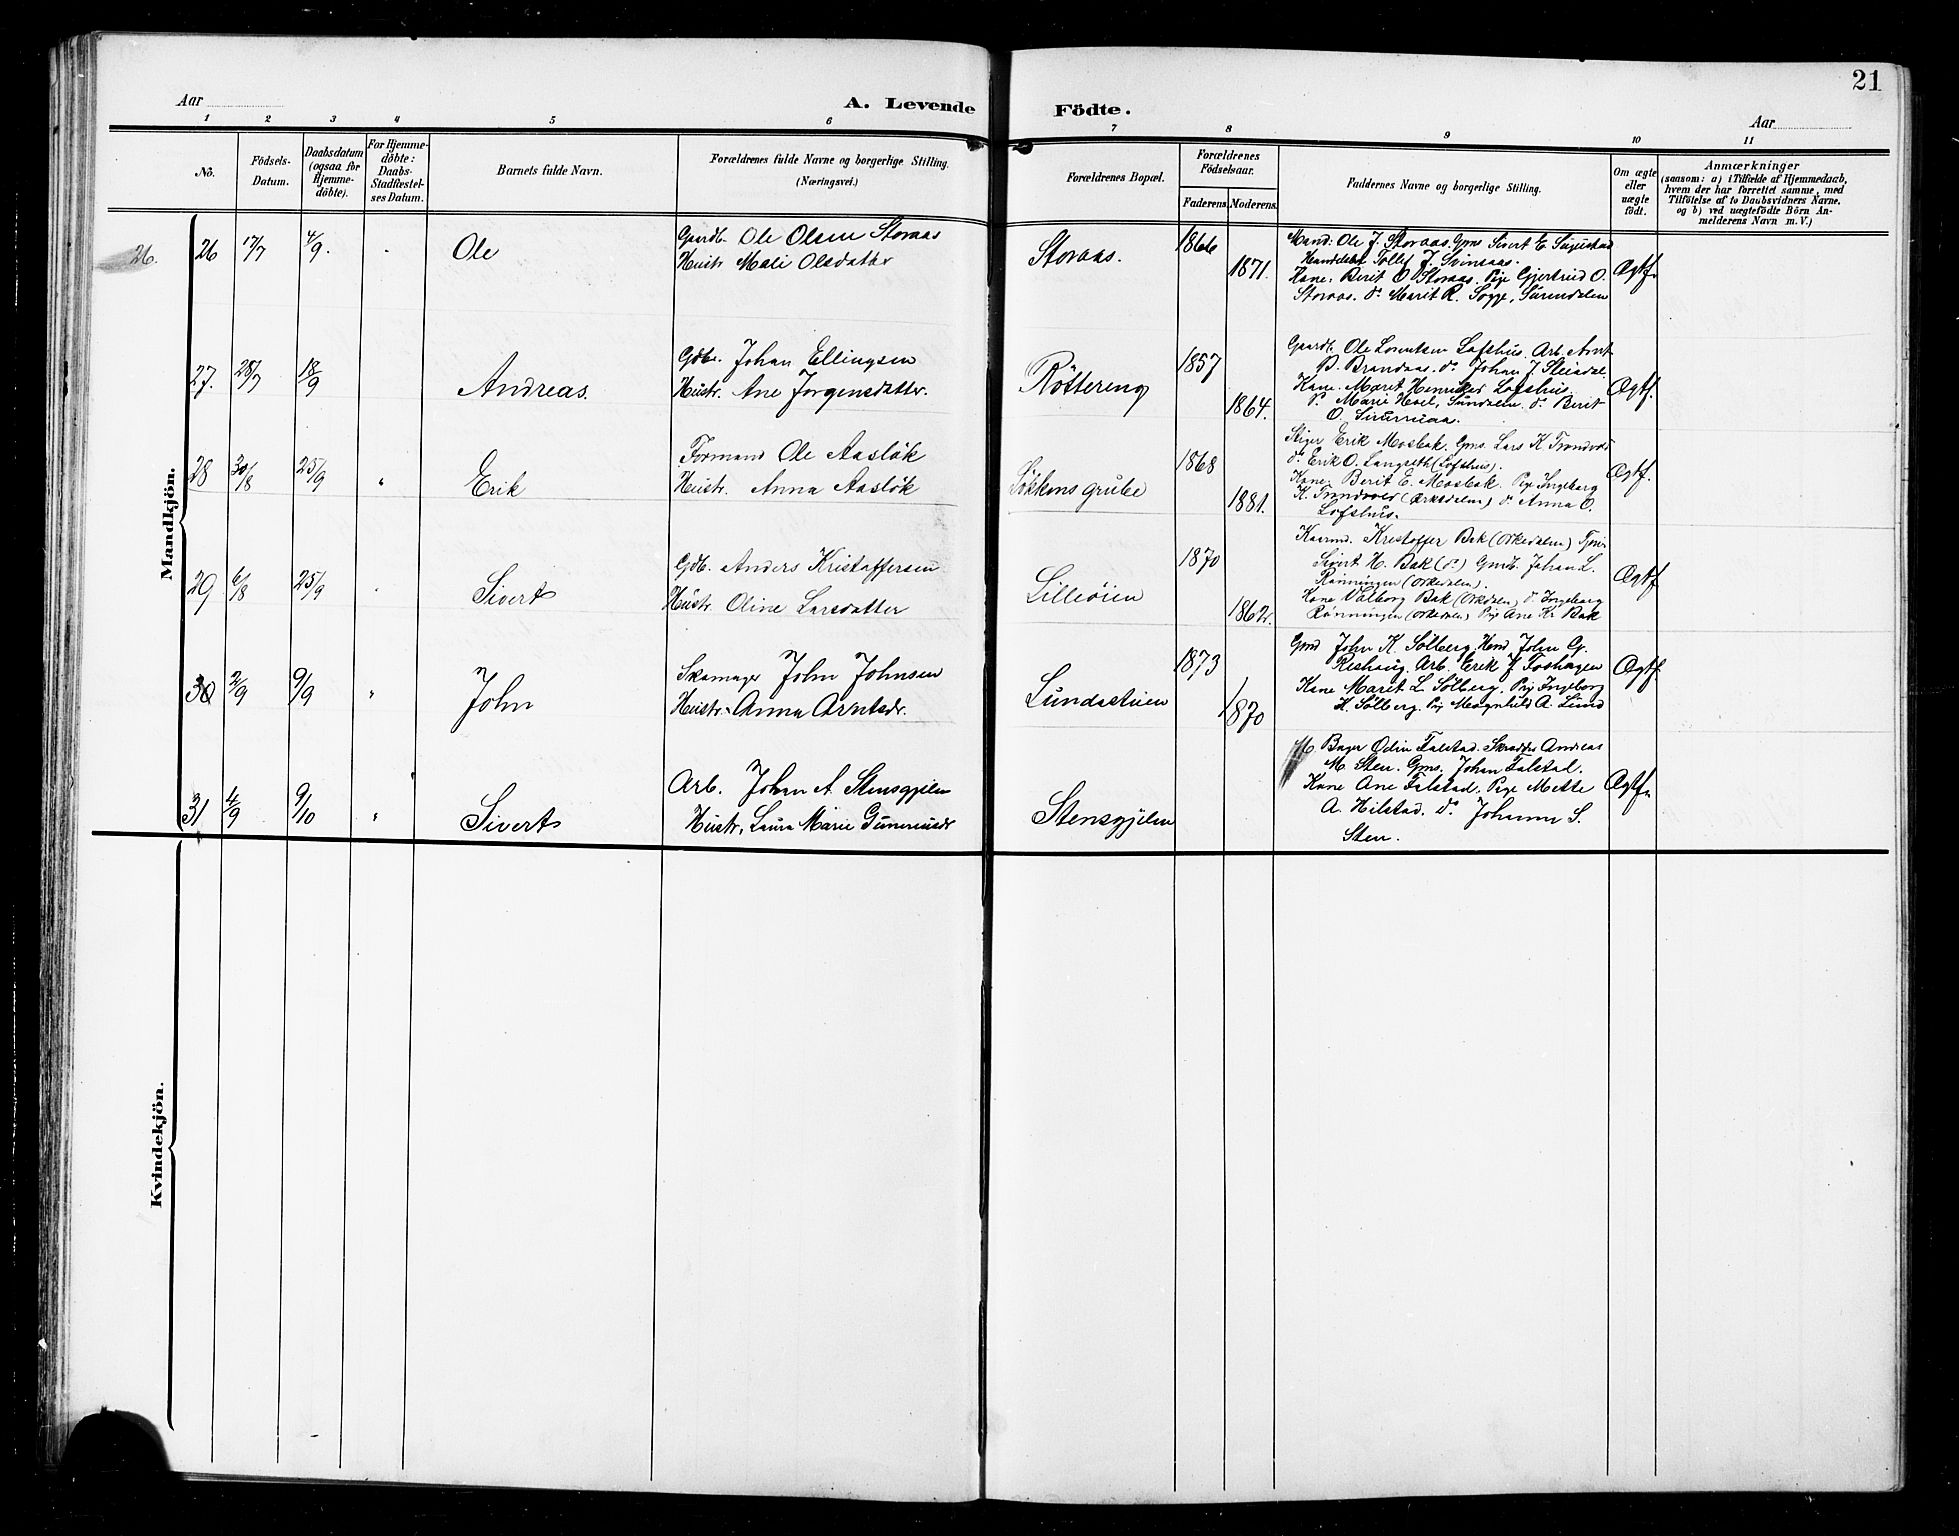 21
Aar
A. Levende Födte.
Aar
1 2 3 4 5 6 7 8 9 10 11
No.
Födsels-Datum.
Daabsdatum (ogsaa for Hjemme-döbte).
For Hjemme-döbte: Daabs-Stadfæstel-ses Datum.
Barnets fulde Navn.
Forældrenes fulde Navne og borgerlige Stilling.
(Næringsvei.)
Forældrenes Bopæl.
Forældrenes Födselsaar.
Faderens.
Moderens.
Faddernes Navne og borgerlige Stilling.
Om ægte eller uægte födt.
Anmærkninger
(saasom: a) i Tilfælde af Hjemmedaab,
hvem der har forrettet samme, med
Tilföielse af to Daabsvidners Navne,
og b) ved uægtefödte Börn An-
melderens Navn m. V.)
Mandkjön.
26.
26 17/7 4/9 Ole
Gaardb. Ole Olsen Storaas
Hustr Mali Olsdatter
Storaas.
1866
1871.
Mand: Ole J. Storaas. Gms Sivert E.
Tollef J. Svinsaas.
Kone, Berit O. Storaas. Pige Gjertrud O.
Storaas. do Marit R. Sogge, Surendalen
Ægtf.
27. 28/7 18/9 Andreas.
Gdbr. Johan Ellingsen
Hustr. Ane Jorgensdatter.
Röttereng
1857
1864.
Gaardb. Ole Lorentsen Lofshus. Arb. Arnt
B. Brandaas. do Johan J.
Kone. Marit Lofshus.
do Marie Hoel, Sundalen. do Berit
O.
Ægtf.
28 30/8 25/9 " Erik
Formand Ole Aasløk
Hustr. Anna Aasløk
Løkkens grube
1868
1881.
Stiger Erik Mosbak. Gms. Lars K.
do Erik O. Langseth (Lofshus).
Kone, Berit E. Mosbak. Pige Ingeborg
K. (Orkedalen) do Anna O.
Lofshus.
Ægtf.
29 6/8 25/9 Sivert
Gdb. Anders Kristoffersen
Hustr. Oline Larsdatter
Lilleöien
1870
1862.
Kristoffer Bak (Orkedalen)
Sivert H. Bak (do) Gmb. Johan L.
Rønningen (Orkedalen).
Kone Valborg Bak (Orkdalen) do Ingeborg
Rønningen (Orkedalen) Pige Ane Kr Bak
Ægtf.
30 2/9 9/9 " John
Skomager John Johnsen
Hustr. Anna Arntsdr.
Lundastuen
1873
1870
Gmd John K. Sølberg, John G.
Reshaug. Arb. Erik J. Foshagen
Kone Marit L. Sølberg. Pig Ingeborg
K. Sølberg. Pig Magnhild A. Lund
Ægtf.
31 4/9 9/10 " Sivert
Arb. Johan A Stensgjelen
Hustr, Laura Marie
Stensgjelen
Bager Odin Falstad. Skrædder Andreas
M. Sten. Gms. Johan Falstad.
Kone Ane Falstad. Pige Mette
A. Hilstad. do Johanna S.
Sten.
Ægtf.
Kvindekjön.